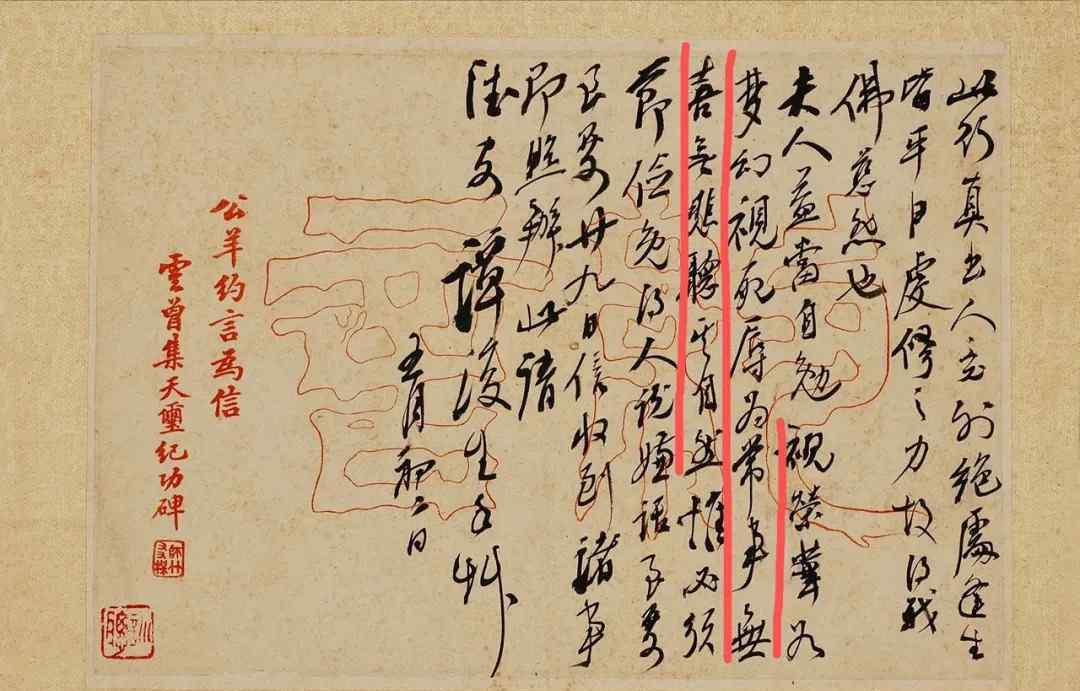 此行真出人意外絕處逢生
皆平日虔修之力故得我
佛慈悲也
夫人益當自勉視榮華如
夢幻視死辱為常事無
喜無悲聽其自然惟必須
節儉免得人說嫌話至要
至要廿九日信收到諸事
即照辦此請
德安
譚復生手草
五月初二日
公羊約言為信
雲曾集天璽紀功碑
師竹友梅